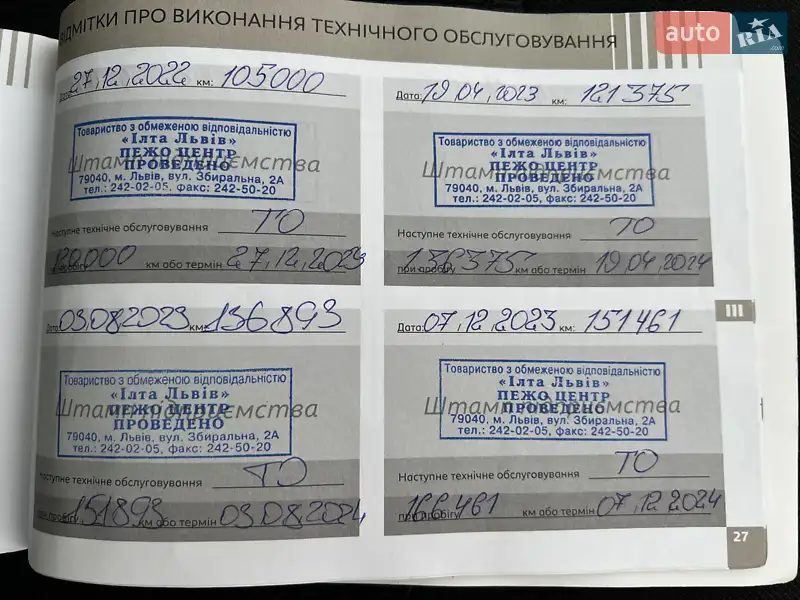 ВІДМІТКИ ПРО ВИКОНАННЯ ТЕХНІЧНОГО ОБСЛУГОВУВАННЯ
auto RIA .com
Дата: 27,12,2022 км: 105000
Товариство з обмеженою відповідальністю
«Ілта Львів»
ПЕЖО ЦЕНТР
Штамп підприємства
ПРОВЕДЕНО
79040, м. Львів, вул. Збиральна, 2А
тел.: 242-02-05, факс: 242-50-20
Наступне технічне обслуговування ТО
при пробігу 120000 км або термін 27,12,2023
Дата: 19.04,2023 км: 121375
Товариство з обмеженою відповідальністю
«Ілта Львів»
ПЕЖО ЦЕНТР
Штамп підприємства
ПРОВЕДЕНО
79040, м. Львів, вул. Збиральна, 2А
тел.: 242-02-05, факс: 242-50-20
Наступне технічне обслуговування ТО
при пробігу 136375 км або термін 19.04,2024
Дата: 03.08.2023 км: 136893
Товариство з обмеженою відповідальністю
«Ілта Львів»
ПЕЖО ЦЕНТР
Штамп підприємства
ПРОВЕДЕНО
79040, м. Львів, вул. Збиральна, 2А
тел.: 242-02-05, факс: 242-50-20
Наступне технічне обслуговування ТО
при пробігу 151893 км або термін 03.08.2024
Дата: 07,12,2023 км: 151461
Товариство з обмеженою відповідальністю
«Ілта Львів»
ПЕЖО ЦЕНТР
Штамп підприємства
ПРОВЕДЕНО
79040, м. Львів, вул. Збиральна, 2А
тел.: 242-02-05, факс: 242-50-20
Наступне технічне обслуговування ТО
при пробігу 166461 км або термін 07,12,2024
III
27